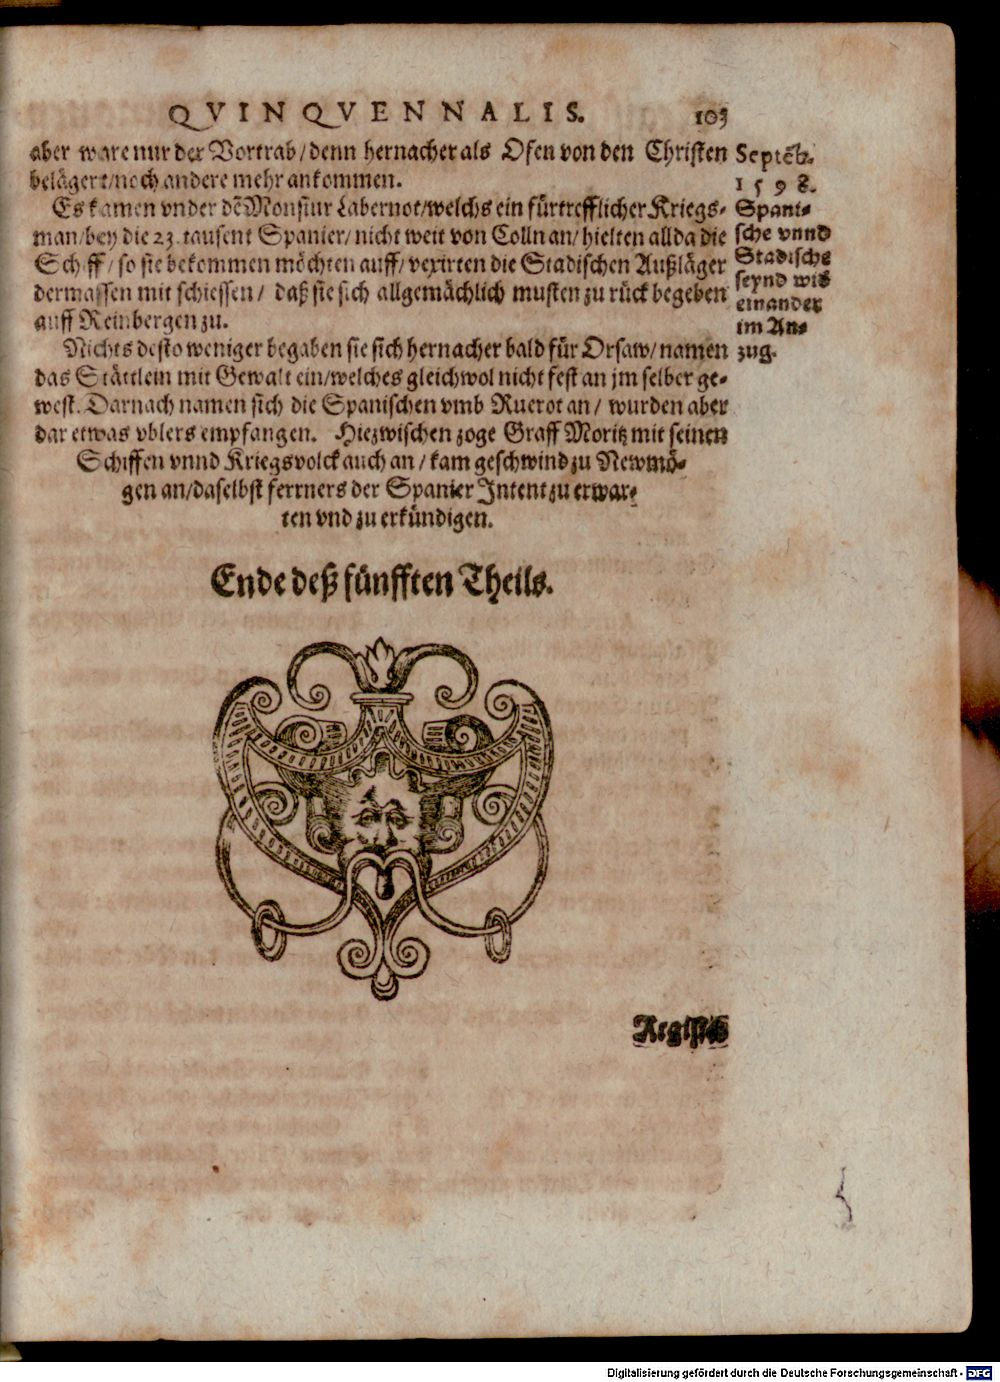 QVINQVENNALIS. 103
aber ware nur der Vortrab/denn hernacher als Ofen von den Christen
belägert/noch andere mehr ankommen.
Es kamen vnder dẽ Monsiur Labernot/welchs ein fürtrefflicher Kriegs-
man/bey die 23. tausent Spanier/nicht weit von Colln an/hielten allda die
Schiff/so sie bekommen möchten auff/vexirten die Stadischen Außläger
dermassen mit schiessen/ daß sie sich allgemächlich musten zu rück begeben
auff Reinbergen zu.
Nichts desto weniger begaben sie sich hernacher bald für Orsaw/namen
das Stättlein mit Gewalt ein/welches gleichwol nicht fest an jm selber ge-
west. Darnach namen sich die Spanischen vmb Ruerort an/ wurden aber
dar etwas vblers empfangen. Hiezwischen zoge Graff Moritz mit seinen
Schiffen vnnd Kriegsvolck auch an/kam geschwind zu Newmä-
gen an/daselbst ferrners der Spanier Intent zu erwar-
ten vnd zu erkündigen.
Septẽb.
1598.
Spani-
sche vnnd
Stadische
seynd wid
einander
im An-
zug.
Ende deß fünfften Theils.
Register
Digitalisierung gefördert durch die Deutsche Forschungsgemeinschaft - DFG